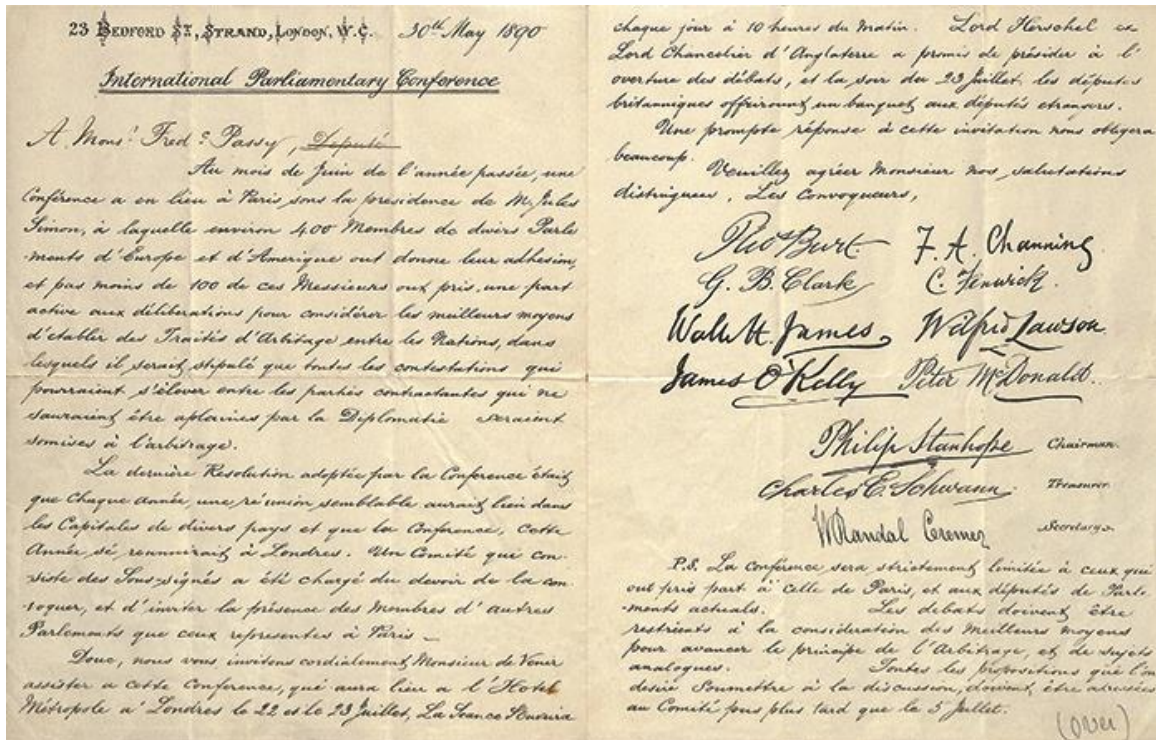 23 BEDFORD ST, STRAND, LONDON, W.C. 30th May 1890
International Parliamentary Conference
A Monsr. Fredc. Passy, Deputé
Au mois de Juin de l'année passée, une
Conférence a eu lieu à Paris, sous la présidence de M. Jules
Simon, à laquelle environ 400 Membres de divers Parle
ments d'Europe et d'Amerique ont donne leur adhesion,
et pas moins de 100 de ces Messieurs ont pris une part
active aux déliberations pour considérer les meilleurs moyens
d'établir des Traités d'Arbitage entre les Nations, dans
lesquels il serait stipulé que toutes les contestations qui
pourraient s'élever entre les parties contractantes qui ne
sauraient être aplanies par la Diplomatie seraient
somises à l'arbitrage.
La dernière Resolution adoptée par la Conference était
que Chaque Année, une réunion semblable aurait lieu dans
les Capitales de divers pays et que la Conference, Cette
Année se reunnirait à Londres. Un Comité qui con-
siste des Sous-signés a été chargé du devoir de la con
-voquer, et d'inviter la présence des Membres d'autres
Parlements que ceux representes à Paris —
Donc, nous vous invitons cordialement Monsieur de Venir
assister a cette Conference, qui aura lieu a l'Hotel
Métropole a' Londres le 22 et le 23 Juillet, La Seance S'ouvrira
chaque jour à 10 heures du Matin. Lord Herschel ex
Lord Chancelier d'Angleterre a promis de présider à l'
overture des débats, et la soir du 23 Juillet les députés
britanniques offriront un banquet aux députés etrangers.
Une prompte réponse à cette invitation nous obligera
beaucoup.
Veuillez agréer Monsieur nos salutations
distinguees, Les Convoqueurs,
Thos Burt. F. A. Channing
G. B. Clark C. Fenwick.
Walter H. James, Wilfrid Lawson
James O'Kelly Peter McDonald..
Philip Stanhope Chairman.
Charles E. Schwann. Treasurer.
W Randal Cremer Secretary.
P.S. La Conférence sera strictement limitée à ceux qui
ont pris part à celle de Paris, et aux députés de Parle
-ments actuals. Les debats doivent être
restrients à la consideration des Meilleurs moyens
pour avancer le principe de l'Arbitrage, et de sujets
analogues. Toutes les propositions que l'on
desire Soumettre à la discussion, doivent être adressées
au Comité pas plus tard que le 5 Juillet.
(over)